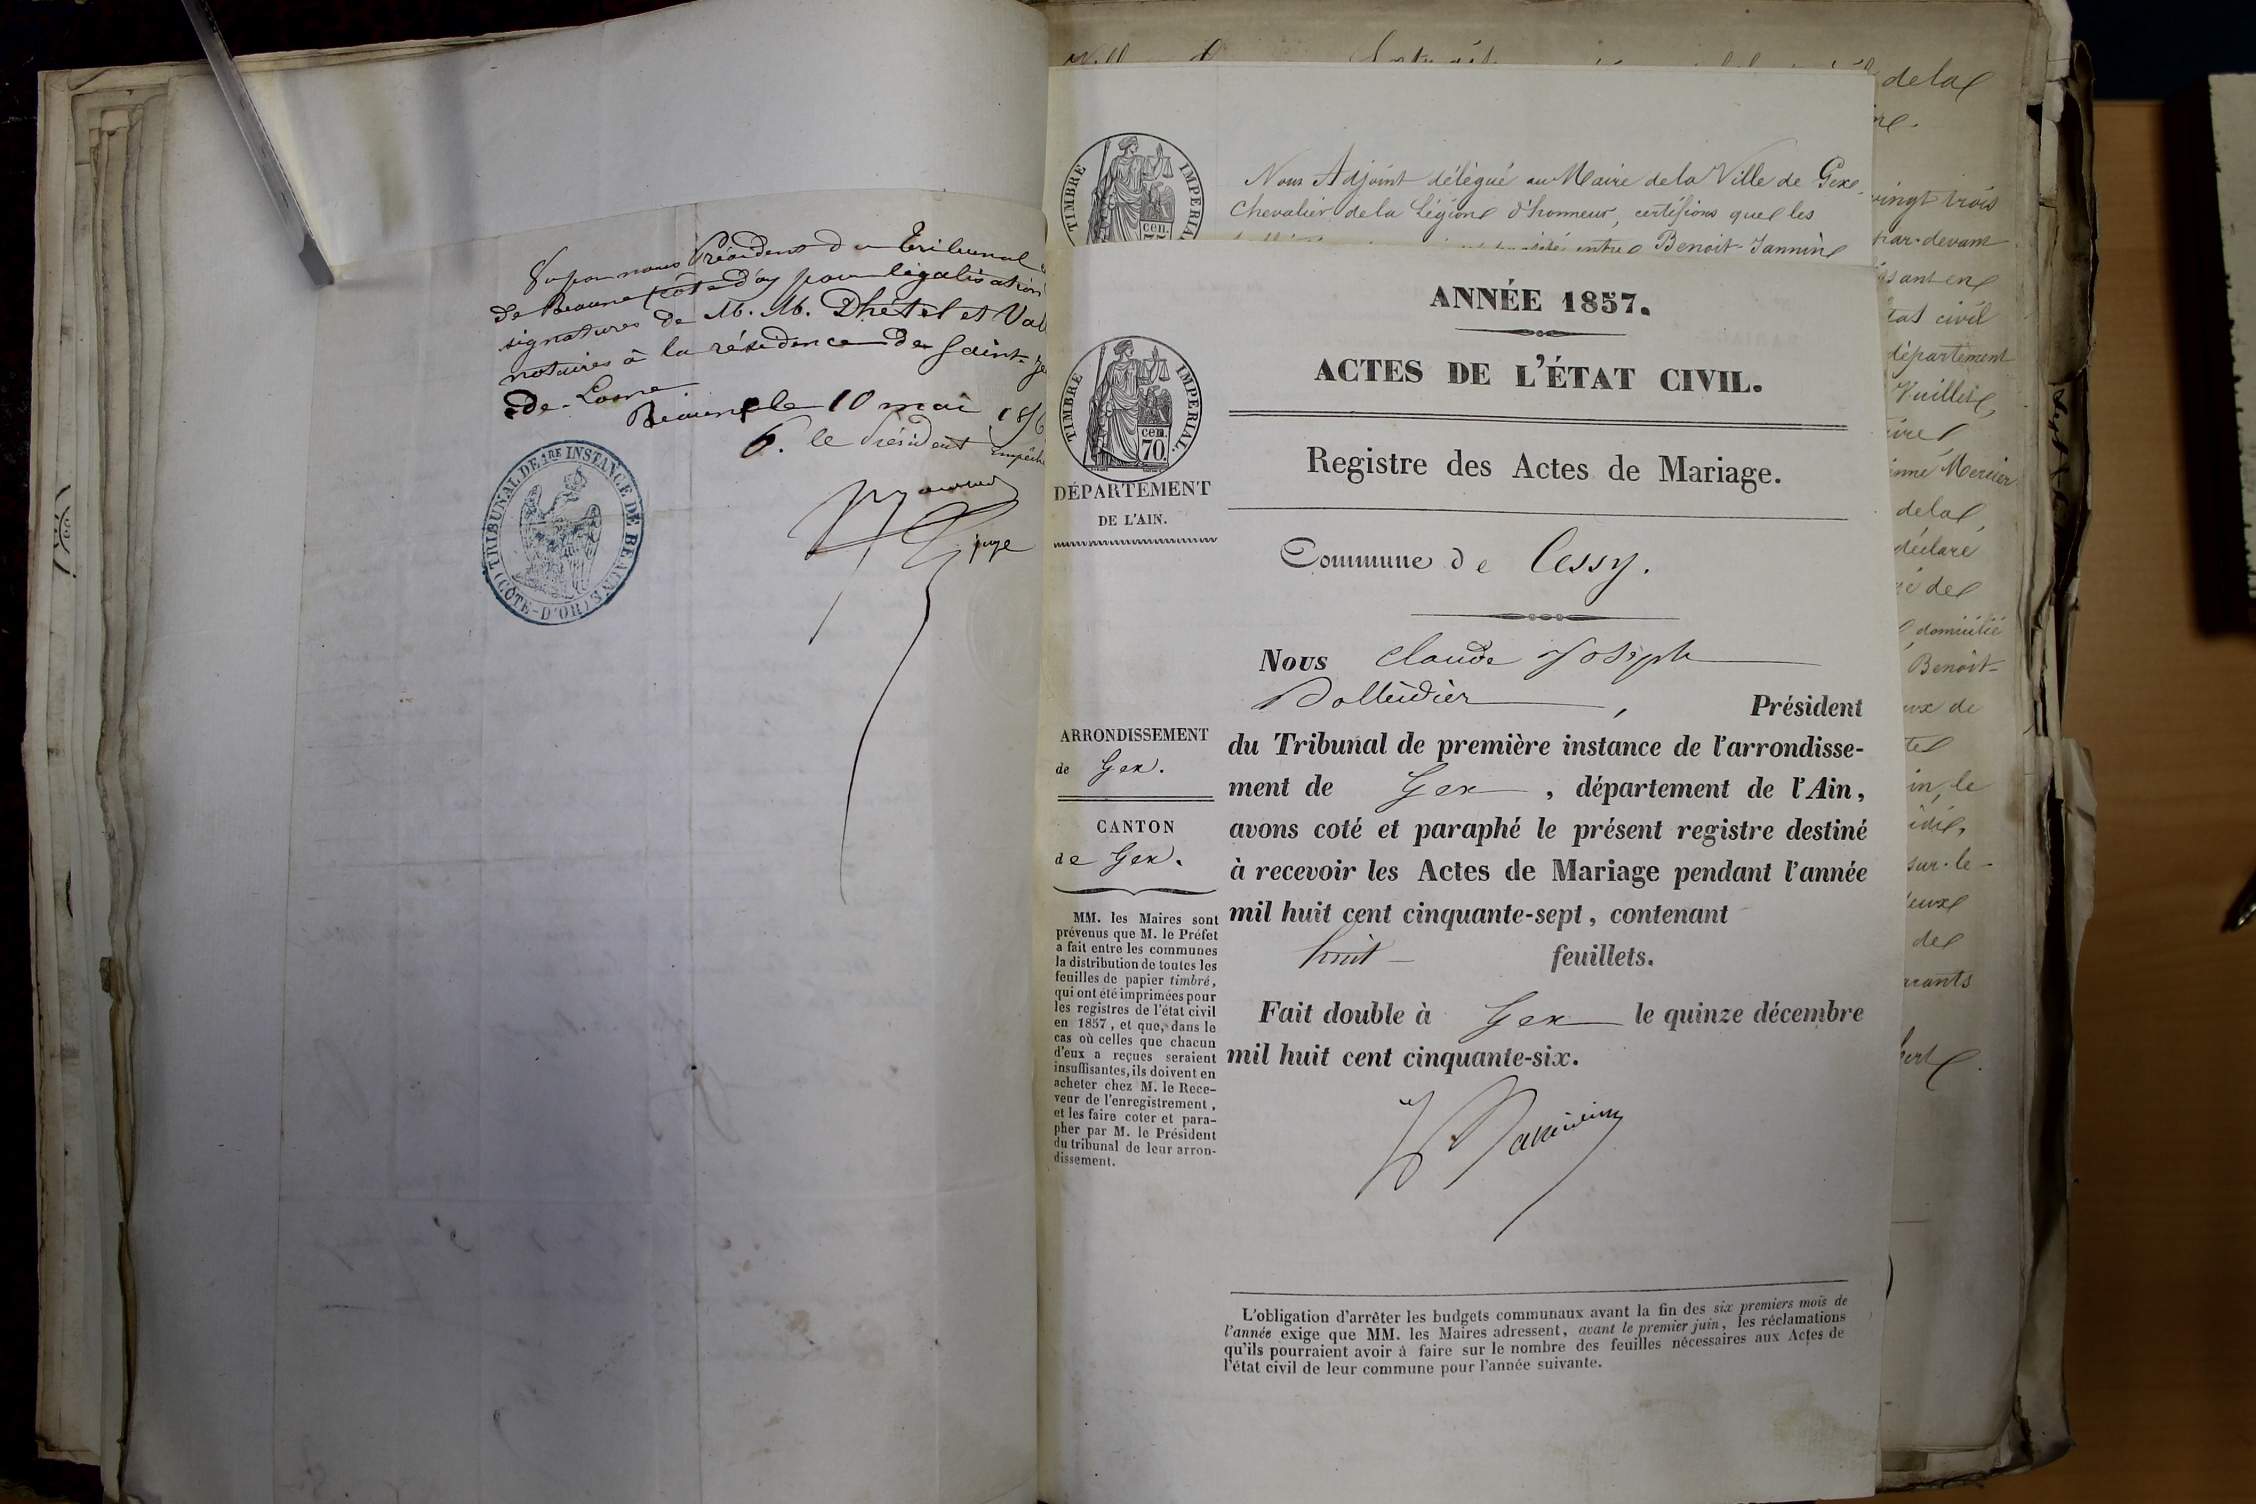 Vu par nous Président du Tribunal
de Beaune (côte d'or) pour légalisation
signatures de M. M. Dhétel et
notaires à la résidence de Saint-
-de-Losne
Beaune le 10 mai
le Président
juge
TRIBUNAL DE 1RE INSTANCE DE BEAUNE (CÔTE-D'OR)
de la
Nous Adjoint délégué au Maire de la Ville de Gex
Chevalier de la Légion d'honneur, certifions que les
entre Benoit-Jannin
TIMBRE IMPERIAL
cen.
vingt trois
par-devant
état civil
département
Vuillet,
Mercier
de la
déclaré
domicilié
Benoit-
in, le
sur-le-
de
ANNÉE 1857.
ACTES DE L'ÉTAT CIVIL.
TIMBRE IMPERIAL.
cen.
70.
DÉPARTEMENT
DE L'AIN.
Registre des Actes de Mariage.
Commune de Cessy.
Nous Claude Joseph
, Président
ARRONDISSEMENT
de Gex.
CANTON
de Gex.
du Tribunal de première instance de l'arrondisse-
ment de Gex , département de l'Ain,
avons coté et paraphé le présent registre destiné
à recevoir les Actes de Mariage pendant l'année
mil huit cent cinquante-sept, contenant
huit feuillets.
Fait double à Gex le quinze décembre
mil huit cent cinquante-six.
MM. les Maires sont
prévenus que M. le Préfet
a fait entre les communes
la distribution de toutes les
feuilles de papier timbré,
qui ont été imprimées pour
les registres de l'état civil
en 1857, et que, dans le
cas où celles que chacun
d'eux a reçues seraient
insuffisantes, ils doivent en
acheter chez M. le Rece-
veur de l'enregistrement,
et les faire coter et para-
pher par M. le Président
du tribunal de leur arron-
dissement.
L'obligation d'arrêter les budgets communaux avant la fin des six premiers mois de
l'année exige que MM. les Maires adressent, avant le premier juin, les réclamations
qu'ils pourraient avoir à faire sur le nombre des feuilles nécessaires aux Actes de
l'état civil de leur commune pour l'année suivante.